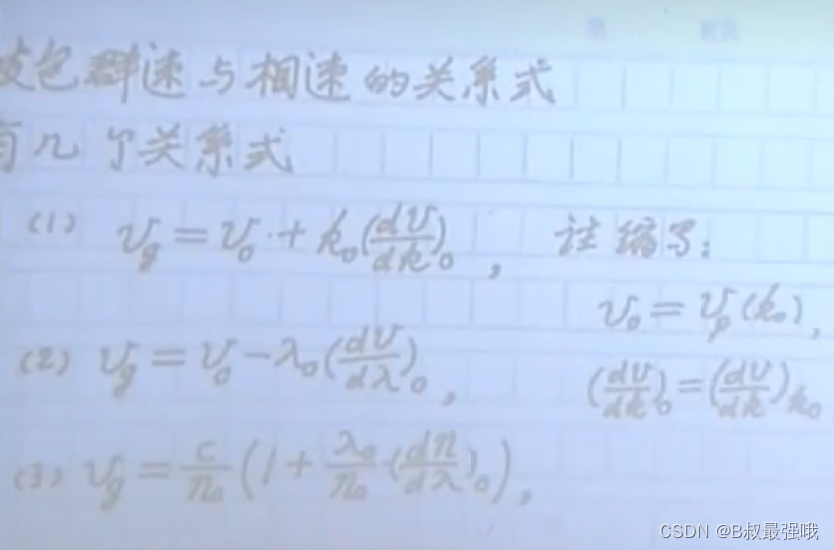 波包群速与相速的关系式
有几个关系式
(1) v_g = v_0 + k_0(dv/dk)_0, 注缩写:
v_0 = v_p(k_0),
(2) v_g = v_0 - λ_0(dv/dλ)_0, (dv/dk)_0 = (dv/dk)_{k_0}
(3) v_g = c/n_0 (1 + λ_0/n_0 (dn/dλ)_0),
CSDN @B叔最强哦